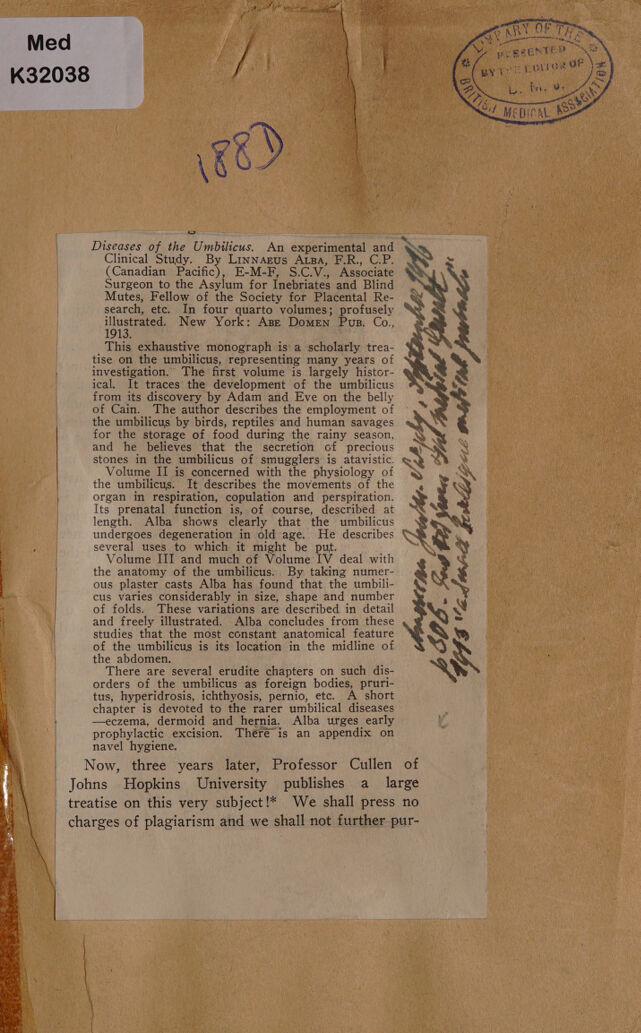 Med
K32038
LIBRARY OF THE
PRESENTED
BY THE EDITOR OF
B. M. J.
BRITISH MEDICAL ASSOCIATION
188D
Diseases of the Umbilicus. An experimental and
Clinical Study. By LINNAEUS ALBA, F.R., C.P.
(Canadian Pacific), E-M-F, S.C.V., Associate
Surgeon to the Asylum for Inebriates and Blind
Mutes, Fellow of the Society for Placental Re-
search, etc. In four quarto volumes; profusely
illustrated. New York: ABE DOMEN PUB. Co.,
1913.
This exhaustive monograph is a scholarly trea-
tise on the umbilicus, representing many years of
investigation. The first volume is largely histor-
ical. It traces the development of the umbilicus
from its discovery by Adam and Eve on the belly
of Cain. The author describes the employment of
the umbilicus by birds, reptiles and human savages
for the storage of food during the rainy season,
and he believes that the secretion of precious
stones in the umbilicus of smugglers is atavistic.
Volume II is concerned with the physiology of
the umbilicus. It describes the movements of the
organ in respiration, copulation and perspiration.
Its prenatal function is, of course, described at
length. Alba shows clearly that the umbilicus
undergoes degeneration in old age. He describes
several uses to which it might be put.
Volume III and much of Volume IV deal with
the anatomy of the umbilicus. By taking numer-
ous plaster casts Alba has found that the umbili-
cus varies considerably in size, shape and number
of folds. These variations are described in detail
and freely illustrated. Alba concludes from these
studies that the most constant anatomical feature
of the umbilicus is its location in the midline of
the abdomen.
There are several erudite chapters on such dis-
orders of the umbilicus as foreign bodies, pruri-
tus, hyperidrosis, ichthyosis, pernio, etc. A short
chapter is devoted to the rarer umbilical diseases
—eczema, dermoid and hernia. Alba urges early
prophylactic excision. There is an appendix on
navel hygiene.
Now, three years later, Professor Cullen of
Johns Hopkins University publishes a large
treatise on this very subject!* We shall press no
charges of plagiarism and we shall not further pur-
American Journ. Surgery, September 1916
p 306. from
1913 "a burlesque medical journal"